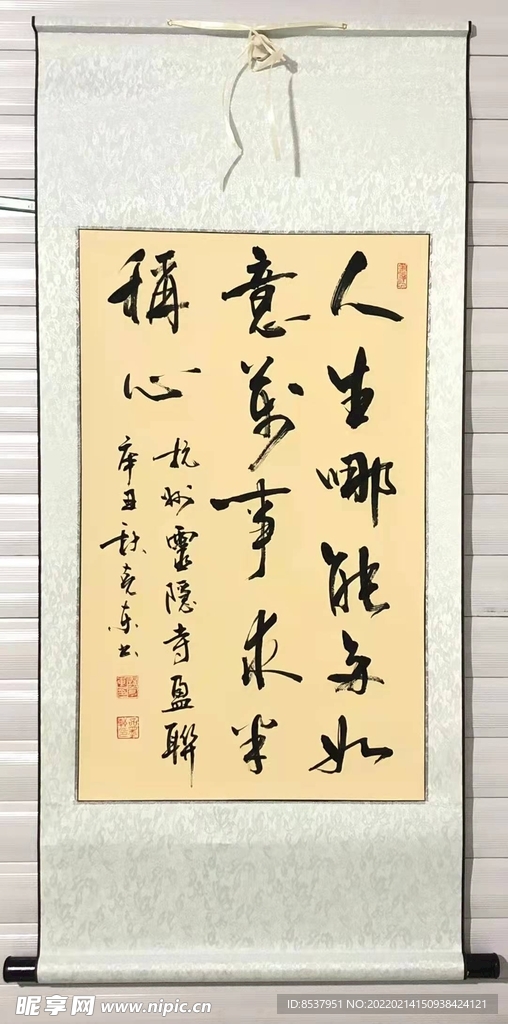 人生哪能多如
意萬事求半
稱心
杭州靈隱寺盈聯
辛丑秋东书
昵享网 www.nipic.cn
ID:8537951 NO:20220214150938424121